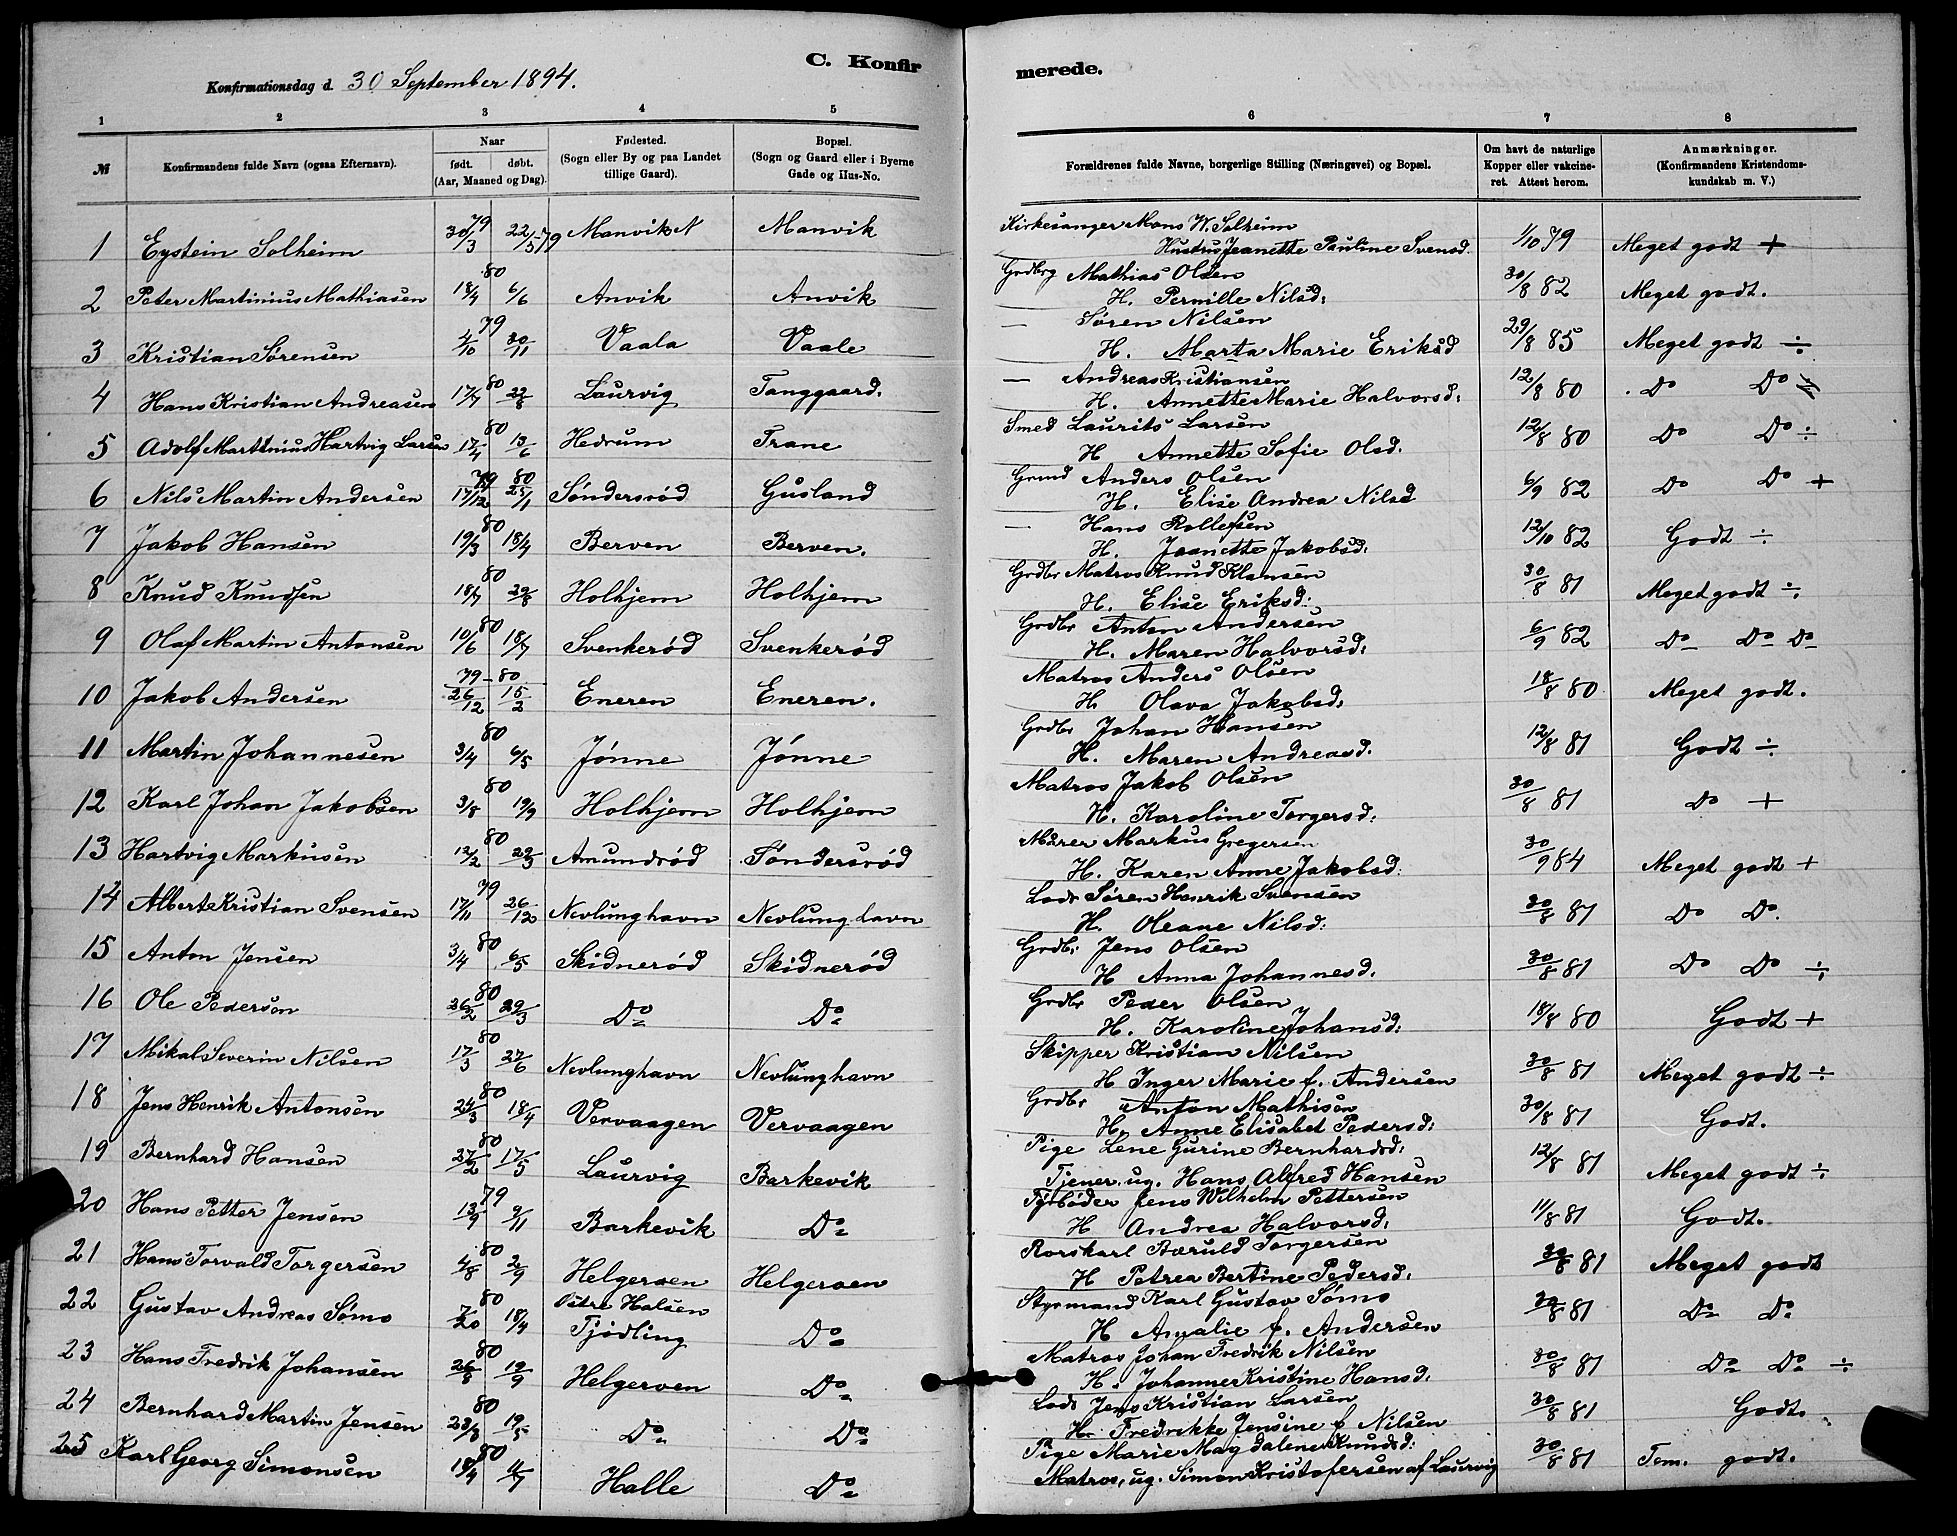 C. Konfirmerede.
Konfirmationsdag d. 30 September 1894.
1 2 3 4 5 6 7 8
№ Konfirmandens fulde Navn (ogsaa Efternavn). Naar født. døbt. (Aar, Maaned og Dag). Fødested. (Sogn eller By og paa Landet tillige Gaard). Bopæl. (Sogn og Gaard eller i Byerne Gade og Hus-No. Forældrenes fulde Navne, borgerlige Stilling (Næringsvei) og Bopæl. Om havt de naturlige Kopper eller vakcineret. Attest herom. Anmærkninger. (Konfirmandens Kristendomskundskab m. V.)
1 Eystein Solheim 30/3 79 22/5 79 Manvik N Manvik Kirkesanger Mons W. Solheim
Hustru Jeanette Pauline Svensd. 1/10 79 Meget godt +
2 Peter Martinius Mathiasen 18/4 80 6/6 Anvik Anvik Grdbrg Mathias Olsen
H. Pernille Nilsd: 30/8 82 Meget godt.
3 Kristian Sørensen 2/10 79 30/11 Vaala Vaale — Søren Nilsen
H. Marta Marie Eriksd 29/8 85 Meget godt ÷
4 Hans Kristian Andreasen 17/7 80 22/8 Laurvig Tanggaard. — Andreas Kristiansen
H. Annette Marie Halvorsd: 12/8 80 Do Do
5 Adolf Martinius Hartvig Larsen 17/4 80 13/6 Hedrum Trane Smed Laurits Larsen
H Annette Sofie Olsd. 12/8 80 Do Do ÷
6 Nils Martin Andersen 17/12 79 25/1 80 Søndersrød Gusland Grmd Anders Olsen
H. Elise Andrea Nilsd 6/9 82 Do Do +
7 Jakob Hansen 19/3 80 18/4 Berven Berven. — Hans Rollefsen
H. Jeanette Jakobsd: 12/10 82 Godt ÷
8 Knud Knudsen 18/7 80 29/8 Holhjem Holhjem Grdbr Matros Knud Klausen
H. Elise Eriksd: 30/8 81 Meget godt ÷
9 Olaf Martin Antonsen 10/6 80 18/7 Svenkerød Svenkerød Grdbr Anton Andersen
H. Maren Halvorsd: 6/9 82 Do Do Do
10 Jakob Andersen 26/12 79-80 15/2 Eneren Eneren. Matros Anders Olsen
H. Olava Jakobsd: 18/8 80 Meget godt.
11 Martin Johannesen 3/4 80 6/5 Jønne Jønne Grdbr Johan Hansen
H. Maren Andreasd. 12/8 81 Godt ÷
12 Karl Johan Jakobsen 3/8 80 19/9 Holhjem Holhjem Matros Jakob Olsen
H. Karoline Torgersd: 30/8 81 Do +
13 Hartvig Markusen 12/2 80 29/3 Amundrød Søndersrød Murer Markus Gregersen
H. Karen Anne Jakobsd: 30/9 84 Meget godt +
14 Albert Kristian Svensen 17/11 79 26/12 Nevlunghavn Nevlunghavn Lods Søren Henrik Svensen
H. Oleane Nilsd: 30/8 81 Do Do.
15 Anton Jensen 3/4 80 6/5 Skidnerød Skidnerød Grdbr. Jens Olsen
H Anna Johannesd: 30/8 81 Do Do ÷
16 Ole Pedersen 26/2 80 29/3 Do Do Grdbr Peder Olsen
H. Karoline Johansd: 18/8 80 Godt +
17 Mikal Severin Nilsen 17/3 80 27/6 Nevlunghavn Nevlunghavn Skipper Kristian Nilsen
H Inger Marie f. Andersen 30/8 81 Meget godt ÷
18 Jens Henrik Antonsen 24/3 80 18/4 Vervaagen Vervaagen Grdbr Anton Mathisen
H. Anne Elisabet Pedersd: 30/8 81 Godt.
19 Bernhard Hansen 27/2 80 17/5 Laurvig Barkevik Pige Lene Gurine Bernhardsd:
Tjener, ug. Hans Alfred Hansen 12/8 81 Meget godt ÷
20 Hans Petter Jensen 13/9 79 9/11 Barkevik Do Fyrbøder Jens Wilhelm Pettersen
H Andrea Halvorsd, 11/8 81 Godt.
21 Hans Torvald Torgersen 4/8 80 2/9 Helgeroen Helgeroen Rorskarl Bæruld Torgersen
H Petrea Bertine Pedersd: 30/8 81 Meget godt
22 Gustav Andreas Sømo 7/20 80 18/4 Østre Halsen Tjødling Do Styrmand Karl Gustav Sømo
H Amalie f. Andersen 30/8 81 Do Do
23 Hans Fredrik Johansen 26/8 80 19/9 Helgeroen Do Matros Johan Fredrik Nilsen
H. Johanne Kristine Hansd. 30/8 81 Do Do ÷
24 Bernhard Martin Jensen 23/3 80 19/5 Do Do Lods Jens Kristian Larsen
H. Fredrikke Jensine f Nilsen 30/8 81 Godt.
25 Karl Georg Simonsen 18/4 80 11/7 Halle Do Pige Marie Magdalene Knudsd:
Matros, ug. Simon Kristofersen af Laurvig 30/8 81 Tem. godt.